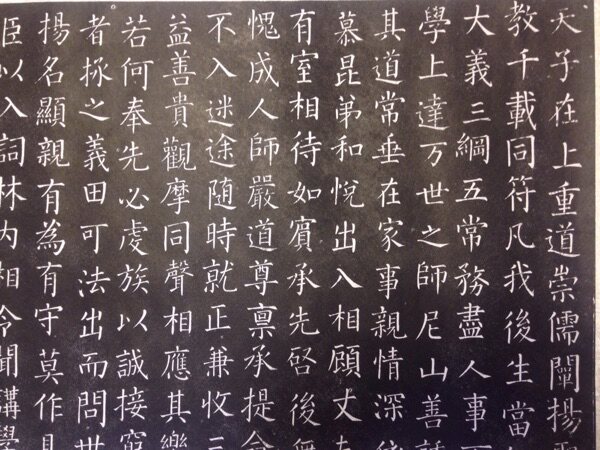 天子在上重道崇儒闡揚
教千載同符凡我後生當
大義三綱五常務盡人事
學上達万世之師尼山善
其道常垂在家事親情深
慕昆弟和悅出入相顧丈
有室相待如賓承先啓後無
愧成人師嚴道尊禀承提
不入迷途随時就正兼收
益善貴觀摩同聲相應其樂
若何奉先必虔族以誠接
者拯之義田可法出而問世
揚名顯親有為有守莫作
臣以入詞林内相令聞講學